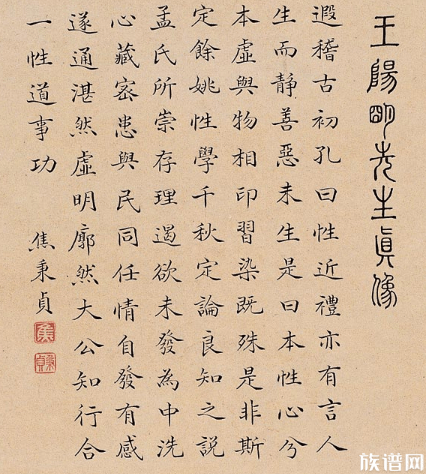 王陽明先生眞像
遐稽古初孔曰性近禮亦有言人
生而靜善惡未生是曰本性心兮
本虛與物相印習染既殊是非斯
定餘姚性學千秋定論良知之說
孟氏所崇存理遏欲未發為中洗
心藏密患與民同任情自發有感
遂通湛然虛明廓然大公知行合
一性道事功
焦秉貞
族谱网